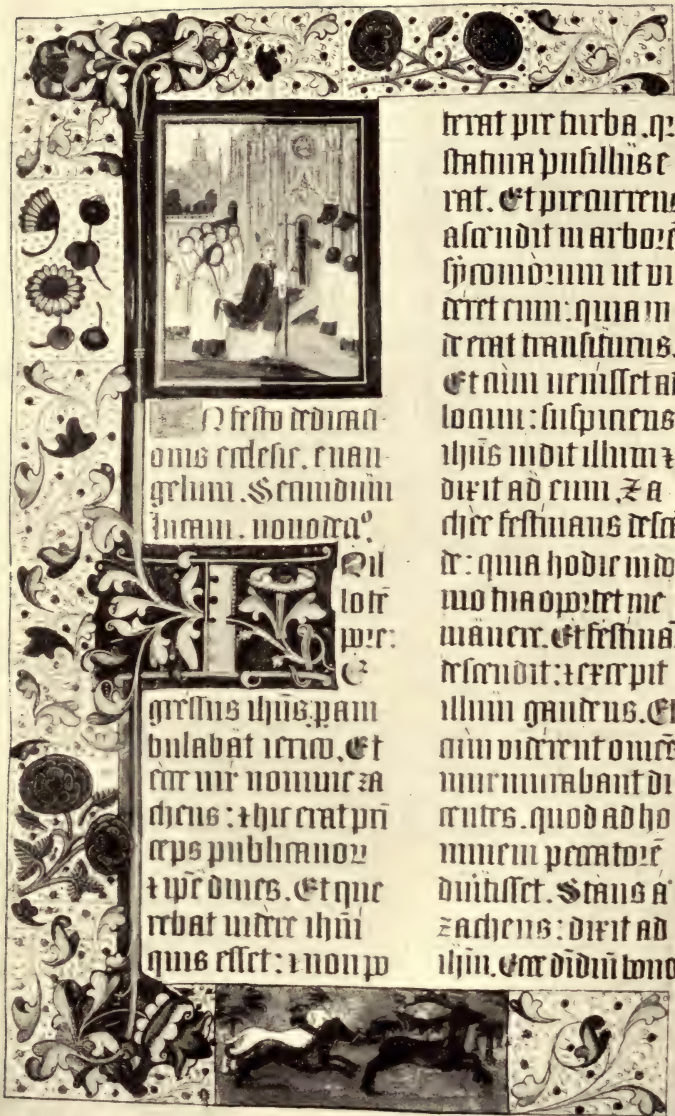 In festo dedicati
onis ecclesie. euan
gelium. Secundum
lucam. nonodec°.
IN il
lo tē
pore:
E
gressus ihūs: pam
bulabat iericо. Et
ecce uir nomine za
cheus: ⁊ hic erat prī
ceps publicanoꝝ
⁊ ip̄e diues. Et que
rebat uidere ihūm
quis esset: ⁊ non po
terat pre turba. qꝛ
statura pusillus e
rat. Et precurrens
ascendit in arborē
sycomorum ut ui
deret eum: quia in
de erat transiturus.
Et cum uenisset ad
locum: suspiciens
ihūs uidit illum ⁊
dixit ad eum. za
chee festinans desce
de: quia hodie in do
mo tua oportet me
manere. Et festinās
descendit: ⁊ excepit
illum gaudens. Et
cum uiderent omēs
murmurabant di
centes. quod ad ho
minem peccatorē
diuītisset. Stans a
zacheus: dixit ad
ihm. Ecce dīdiū bono